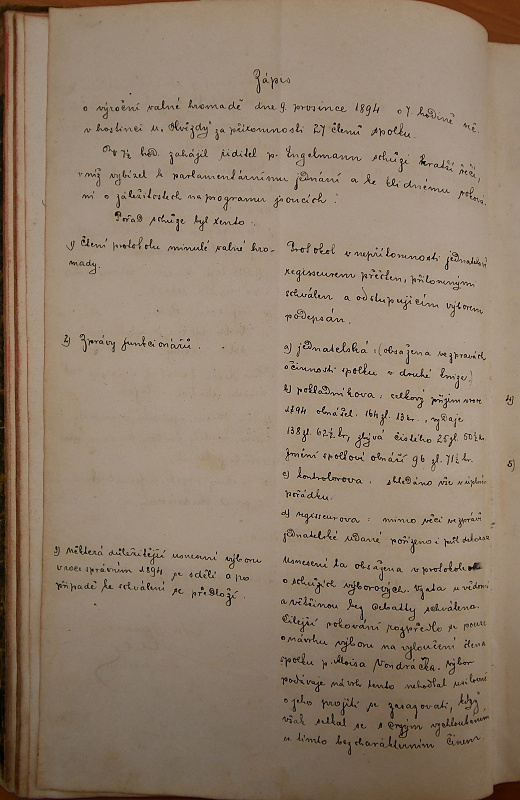 Zápis
o výroční valné hromadě dne 9. prosince 1894 o 7 hodině več.
v hostinci u „Hvězdy" za přítomnosti 27 členů spolku.
O 7½ hod. zahájil ředitel p. Engelmann schůzi kratší řečí,
v níž vybízel k parlamentárnímu jednání a ke klidnému roková-
ní o záležitostech na programu jsoucích.
Pořad schůze byl tento:
1) Čtení protokolu minulé valné hro-
mady.
Protokol v nepřítomnosti jednatele
regisseurem přečten, přítomnými
schválen a odstupujícím výborem
podepsán.
2) Zprávy funkcionářů.
a) jednatelská: (obsažena ve zprávách
o činnosti spolku v druhé knize.)
b) pokladníkova: celkový příjem v roce
1894 obnášel 164 zl. 13 kr., vydaje
138 zl. 62½ kr, zbývá čistého 25 zl. 50½ kr.
jmění spolkové obnáší 96 zl. 71½ kr.
c) kontrolorova: shledáno vše v úplném
pořádku.
d) regisseurova: mimo věci ve zprávě
jednatelské udané pořízeno i
3) Některá důležitější usnesení výboru
v roce správním 1894 se sdělí a po
případě ke schválení se předloží.
Usnesení ta obsažena v protokolech
o schůzích výborových. Vzata u vědomí
a většinou bez debatty schválena.
Čilejší rokování rozpředlo se pouze
o návrhu výboru na vyloučení člena
spolku p. Aloisa Vondráčka. Výbor
podávaje návrh tento nehodlal
o jeho projití se zasazovati, když
však setkal se s
s tímto bezcharakterním činem
4)
5)